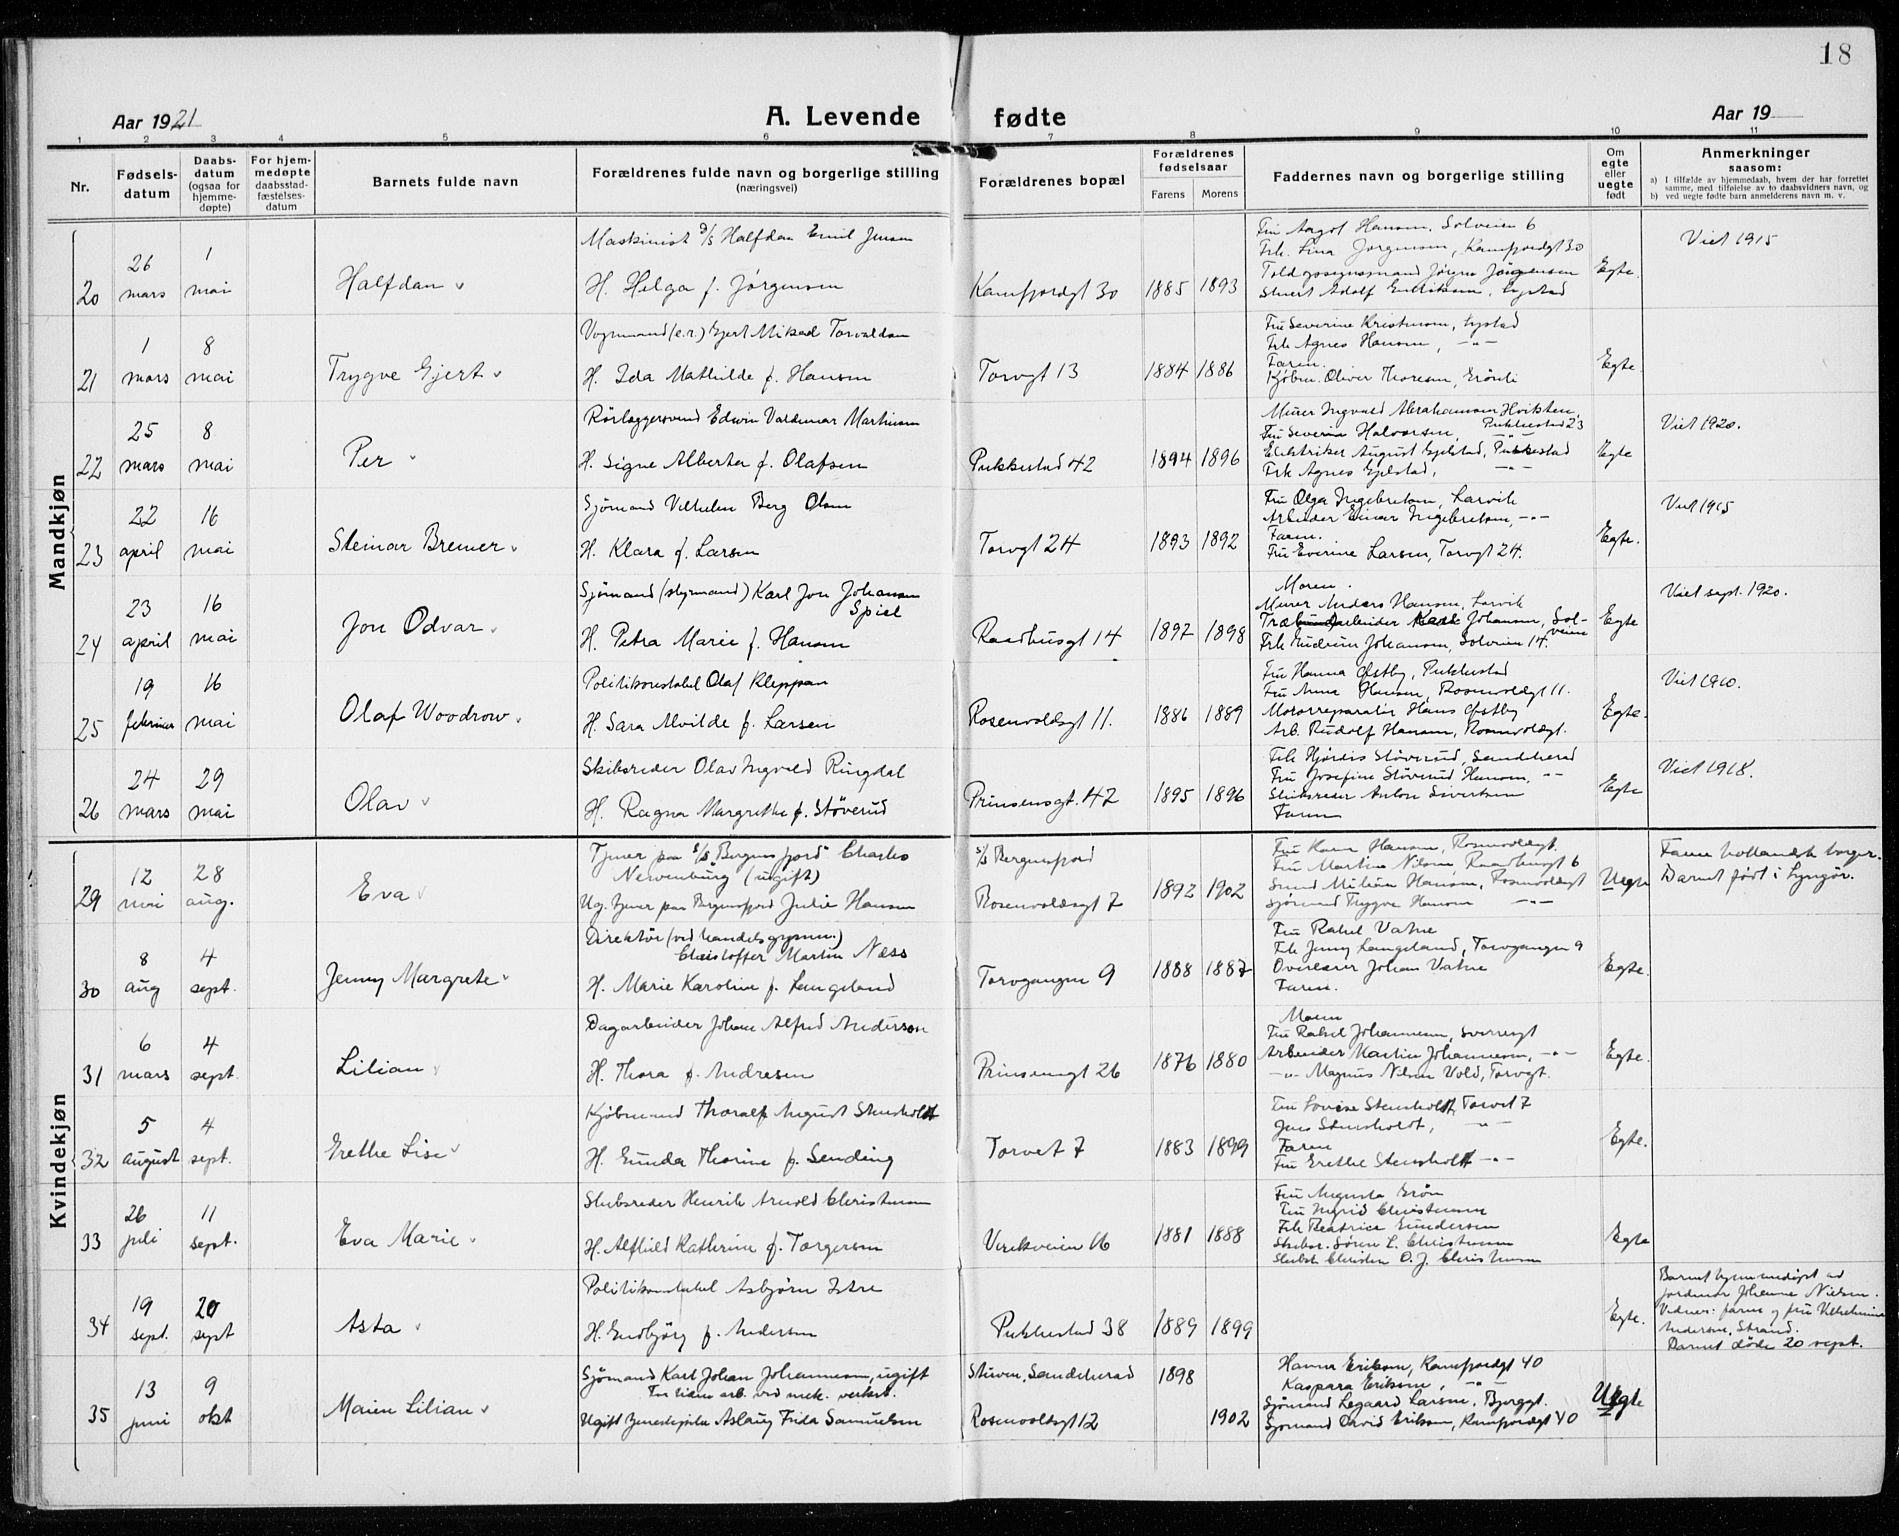 18
Aar 1921
A. Levende fødte
Aar 19
1 2 3 4 5 6 7 8 9 10 11
Nr.
Fødsels-
datum
Daabs-
datum
(ogsaa for
hjemme-
døpte)
For hjem-
medøpte
daabsstad-
fæstelses-
datum
Barnets fulde navn
Forældrenes fulde navn og borgerlige stilling
(næringsvei)
Forældrenes bopæl
Forældrenes
fødselsaar
Farens Morens
Faddernes navn og borgerlige stilling
Om
egte
eller
uegte
født
Anmerkninger
saasom:
a) I tilfælde av hjemmedaab, hvem der har forrettet
samme, med tilføielse av to daabsvidners navn, og
b) ved uegte fødte barn anmelderens navn m. v.
Mandkjøn
20
26
mars
1
mai
Halfdan
Maskinist d/s Halfdan Emil Jensen
H. Helga f. Jørgensen
Kamfjordgt 30
1885 1893
Fru Aagot Hansen, Solveien 6
Frk. Lina Jørgensen, Kamfjordgt 30
Toldopsynsmand Jørgen Jørgensen
Stuert Adolf Eriksen, Lystad
Egte.
Viet 1915
21
1
mars
8
mai
Trygve Gjert
Vognmand (e.r.) Gjert Mikael Torvaldsen
H. Ida Mathilde f. Hansen
Torvgt 13
1884 1886
Fru Severine Kristensen, Lystad
Frk Agnes Hansen, -"-
Faren.
Kjøbm. Oliver Thoresen, Grønli
Egte.
22
25
mars
8
mai
Per
Rørlæggersvend Edwin Valdemar Martinsen
H. Signe Alberta f. Olafsen
Pukkestad 42
1894 1896
Murer Ingvald Abrahamsen Hvidsten,
Fru Severine Halvorsen, Pukkestad 23
Elektriker August Gjelstad, Pukkestad
Frk Agnes Gjelstad, -"-
Egte
Viet 1920.
23
22
april
16
mai
Steinar Bremer
Sjømand Vilhelm Berg Olsen
H. Klara f. Larsen
Torvgt 24
1893 1892
Fru Olga Ingebretsen, Larvik
Arbeider Einar Ingebretsen, -"-
Faren.
Fru Everine Larsen, Torvgt 24.
Egte.
Viet 1915
24
23
april
16
mai
Jon Odvar
Sjømand (styrmand) Karl Jon Johansen
Spiel
H. Petra Marie f. Hansen
Raadhusgt 14
1897 1898
Moren.
Murer Anders Hansen, Larvik
Karl Johansen, Sol-
veien
Frk Gudrun Johansen, Solveien 14.
Egte
Viet sept. 1920.
25
19
februar
16
mai
Olaf Woodrow
Politikonstabel Olaf Kleppan
H. Sara Alvilde f. Larsen
Rosenvoldsgt 11.
1886 1889
Fru Hanna Østby, Pukkestad
Fru Anna Hansen, Rosenvoldgt 11.
Motorreparatør Hans Østby
Arb. Rudolf Hansen, Rosenvoldgt.
Egte.
Viet 1910.
26
24
mars
29
mai
Olav
Skibsreder Olav Ingvald Ringdal
H. Ragna Margrethe f. Støverud
Prinsensgt. 42
1895 1896
Frk Hjørdis Støverud, Sandeherad
Fru Josefine Støverud Hansen, -"-
Skibsreder Anton Sivertsen
Faren
Egte
Viet 1918.
Kvindekjøn
29
12
mai
28
aug.
Eva
Tjener paa s/s "Bergensfjord" Charles
(ugift)
Ug. tjener paa Bergensfjord Julie Hansen
s/s Bergensfjord
Rosenvoldsgt 7
1892 1902
Fru Karen Hansen, Rosenvoldgt.
Fru Martine Nilsen, Raadhusgt 6
Hansen, Rosenvoldgt
Sjømand Trygve Hansen -"-
Uegte
Faren hollandsk borger.
Barnet født i Lyngør.
30
8
aug
4
sept.
Jenny Margrete
Direktør (ved handelsgymn.)
Christoffer Martin Næss
H. Marie Karoline f. Langeland
Torvgangen 9
1888 1887
Fru Rakel Vatne
Frk Jenny Langeland, Torvgangen 9
Overlærer Johan Vatne
Faren.
Egte.
31
6
mars
4
sept.
Lilian
Dagarbeider Johan Alfred Anderson
H. Thora f. Andresen
Prinsensgt 26
1876 1880
Moren
Fru Rakel Johannesen, Sverresgt
Arbeider Martin Johannesen, -"-
-"- Magnus Nilsen Vold, Torvgt.
Egte.
32
5
august
4
sept.
Grethe Lise
Kjøbmand Thoralf August Stensholdt
H. Gunda Thorine f. Sending
Torvet 7
1883 1899
Fru Lovise Stensholdt, Torvet 7
Jens Stensholdt, -"-
Faren
Fru Grethe Stensholdt -"-
Egte.
33
26
juli
11
sept.
Eva Marie
Skibsreder Henrik Arnold Christensen
H. Alfhild Kathrine f. Torgersen
Vierikveien 16
1881 1888
Fru Augusta Grøn
Fru Ingrid Christensen
Frk Beatrice Gundersen
Skibsr. Søren L. Christensen
Skibsr. Christen O. J. Christensen
Egte
34
19
sept.
20
sept
Asta
Politikonstabel Asbjørn Istre
H. Gudbjørg f. Andersen
Pukkestad 38
1889 1899
Egte.
Barnet hjemmedøpt av
jordmor Johanne Nielsen.
Vidner: faren og fru Vilhelmine
Andersen, Strand.
Barnet døde 20 sept.
35
13
juni
9
okt
Maien Lilian
Sjømand Karl Johan Johannesen, ugift
For tiden arb. ved mek. verkst.
Ugift tjenestepike Aslaug Frida Samuelsen
Stuven, Sandeherad
Rosenvoldsgt 12
1898
1902
Hanna Eriksen, Kamfjordgt 40
Kaspara Eriksen, -"-
Sjømand Legaard Larsen, Bjerggt.
Sjømand David Eriksen, Kamfjordgt 40
Uegte